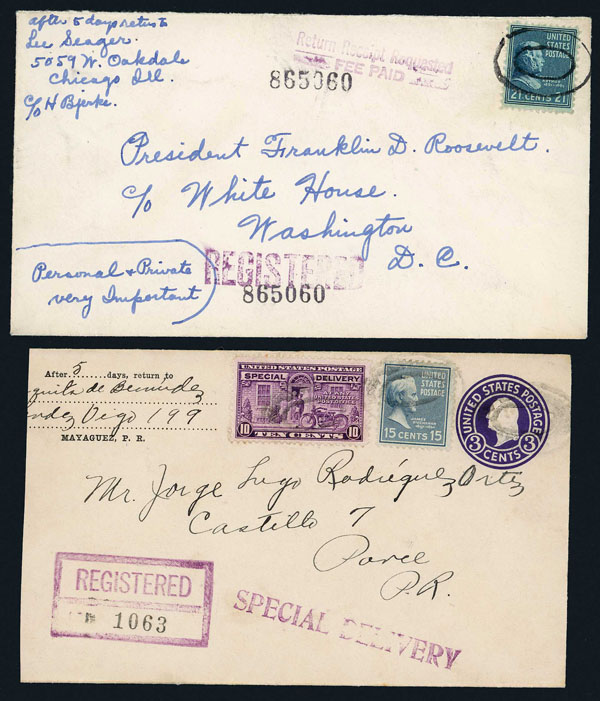 after 5 days return to
Lee Seager.
5059 W. Oakdale
Chicago Ill.
c/o H Bjerke.
Return Receipt Requested
FEE PAID
865060
UNITED
STATES
POSTAGE
21 CENTS 21
President Franklin D. Roosevelt.
c/o White House.
Washington
D. C.
Personal & Private
very Important
REGISTERED
865060
After 5 days, return to
de Bermudez
Vigo 199
MAYAGUEZ, P. R.
UNITED STATES POSTAGE
SPECIAL DELIVERY
10 TEN CENTS 10
UNITED
STATES
POSTAGE
15 CENTS 15
UNITED STATES POSTAGE
3 CENTS 3
Mr. Jorge Lugo Rodriguez Ortiz
Castillo 7
Ponce
P.R.
REGISTERED
1063
SPECIAL DELIVERY